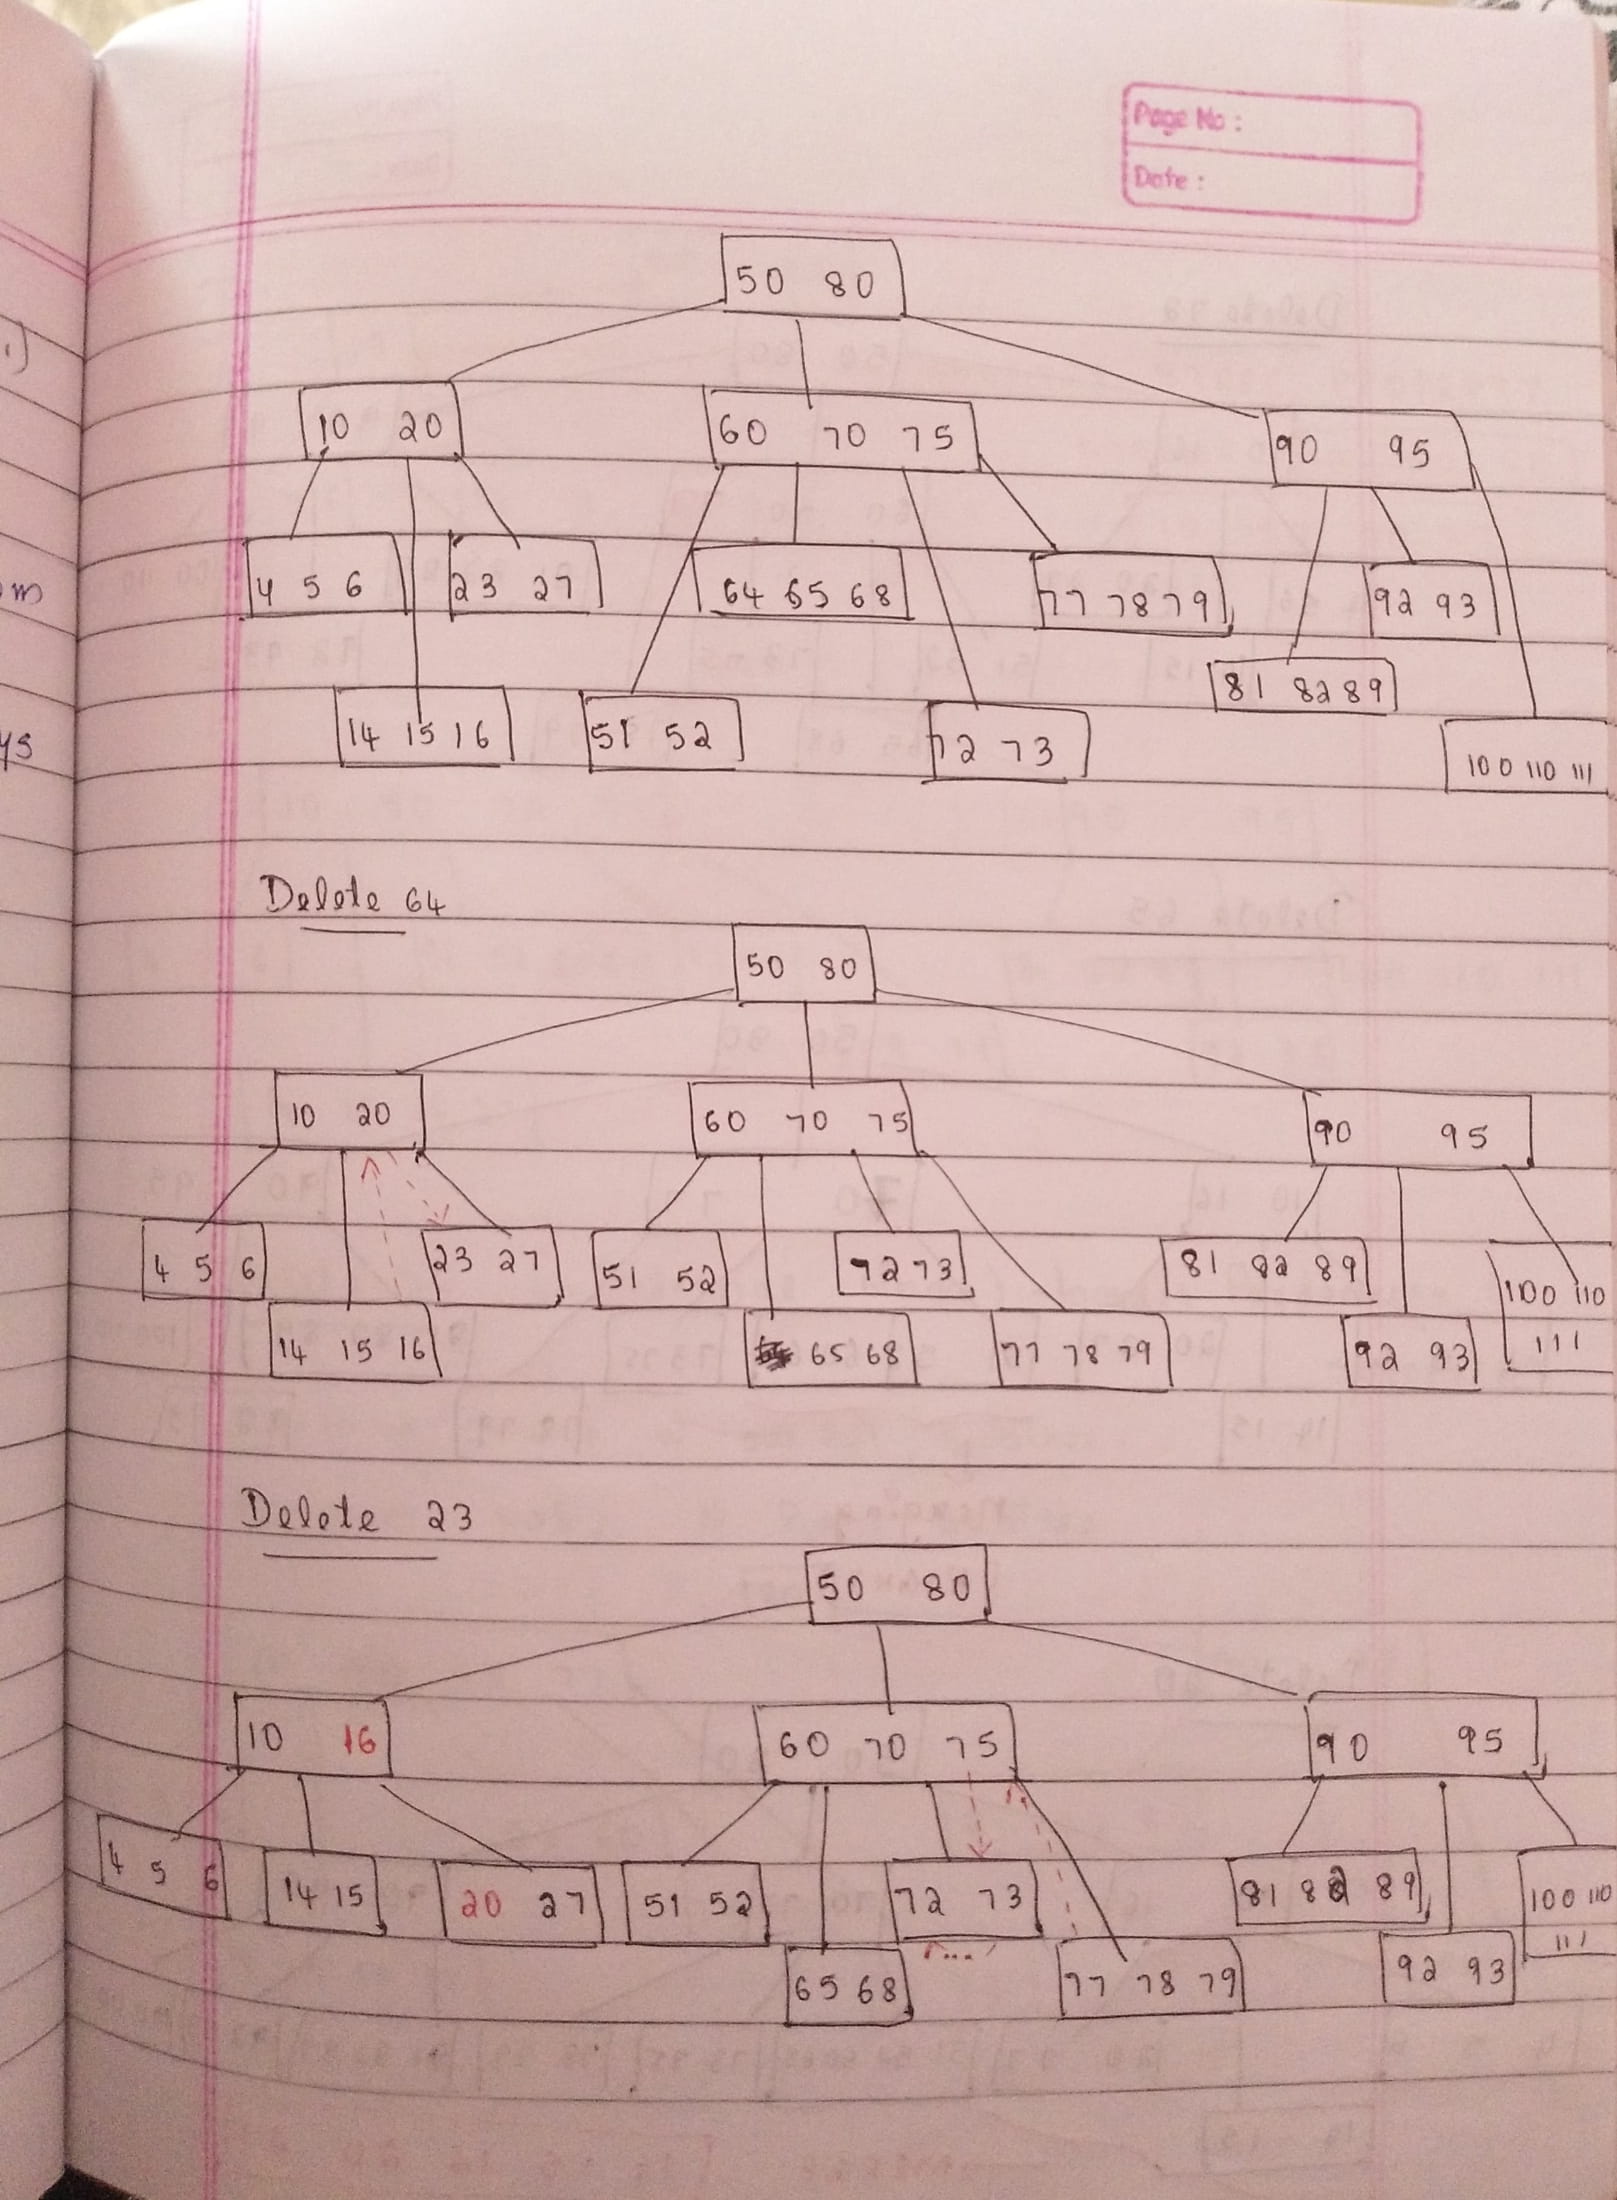 Page No :
Date :
50 80
10 20 60 70 75 90 95
4 5 6 23 27 64 65 68 77 78 79 92 93
81 82 89
14 15 16 51 52 72 73 100 110 111
Delete 64
50 80
10 20 60 70 75 90 95
4 5 6 23 27 51 52 72 73 81 82 89 100 110
14 15 16 65 68 77 78 79 92 93 111
Delete 23
50 80
10 16 60 70 75 90 95
4 5 6 14 15 20 27 51 52 72 73 81 82 89 100 110
111
65 68 77 78 79 92 93